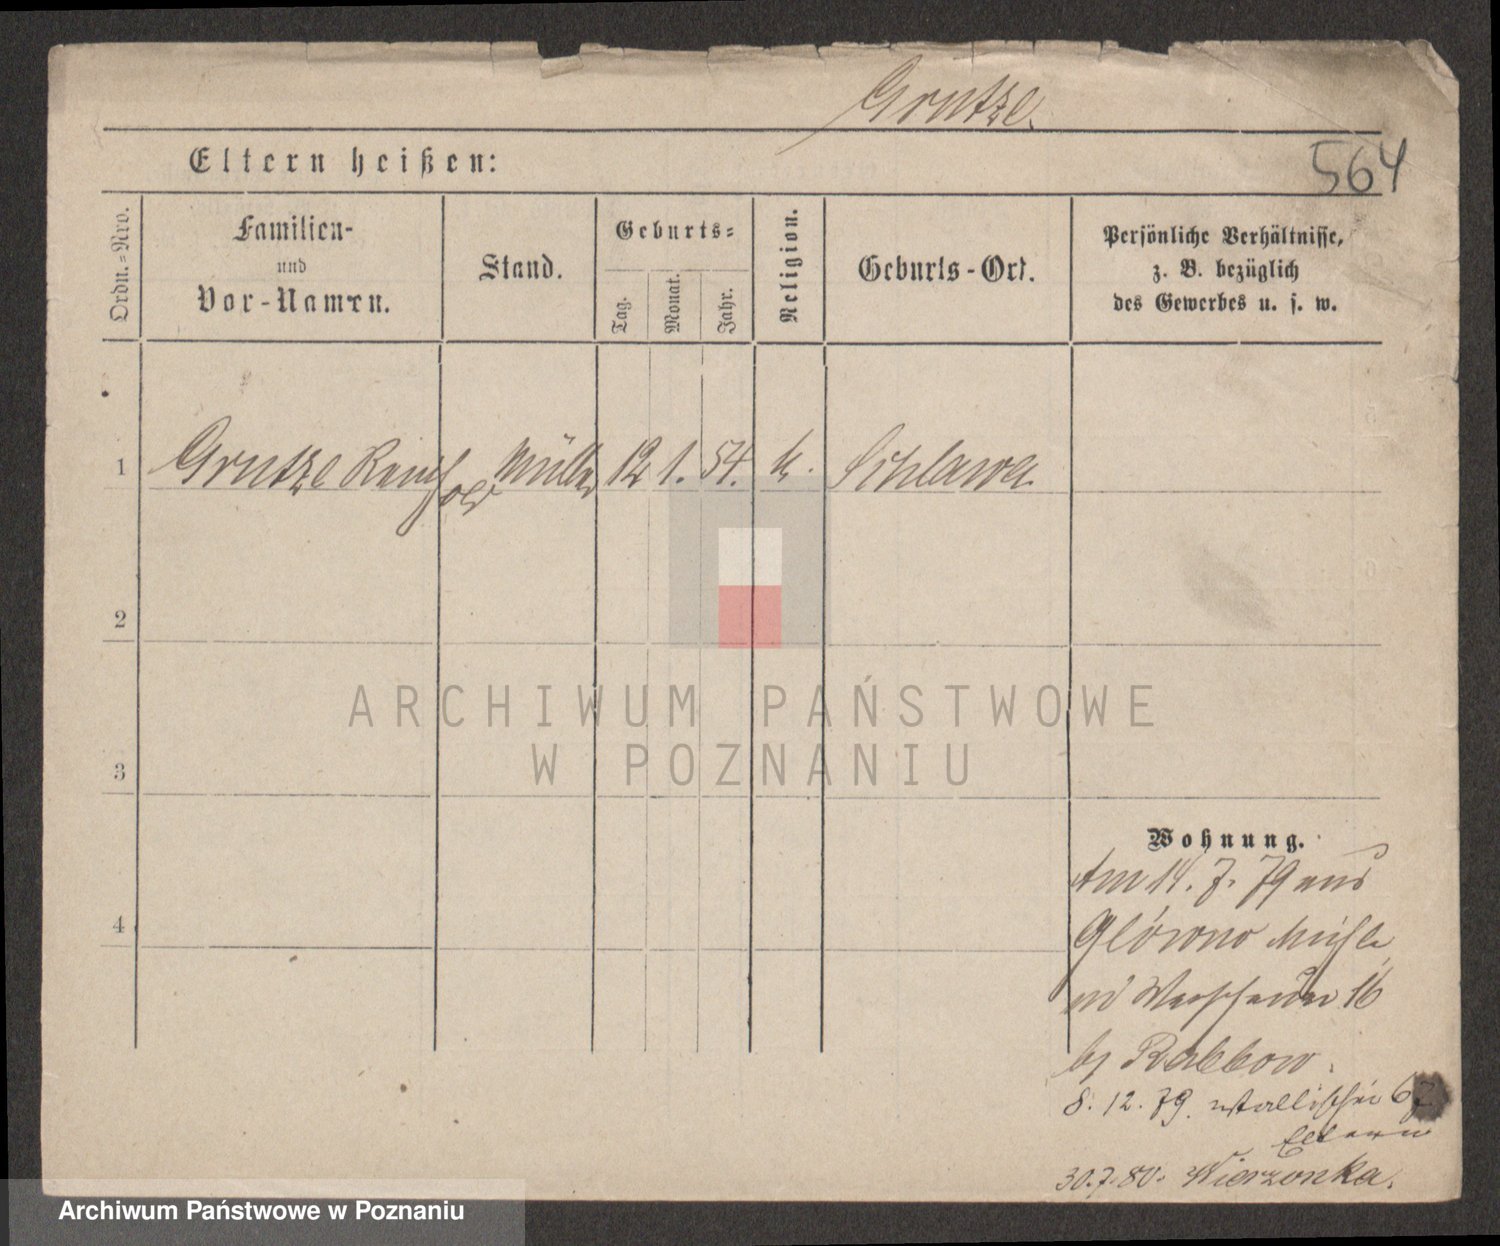 Grutze.
564
Eltern heißen:
Ordn.=Nro.
Familien-
und
Vor-Namen.
Stand.
Geburts=
Tag.
Monat.
Jahr.
Religion.
Geburts-Ort.
Persönliche Verhältnisse,
z. B. bezüglich
des Gewerbes u. s. w.
1 Grutze Reinhold Müller 12 1. 54. k. Schlawa
2
3
4
ARCHIWUM PAŃSTWOWE
W POZNANIU
Wohnung.
Am 14. 7. 79 aus
Glówno Mühle
16
bj Rabbow.
8. 12. 79. Wallischei 67
Eltern
30. 7. 80. Wierzonka.
Archiwum Państwowe w Poznaniu